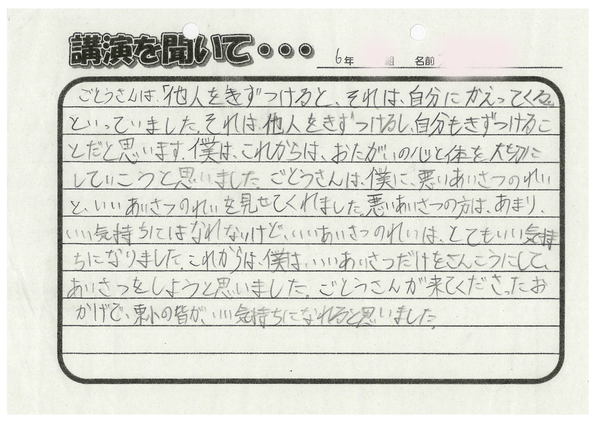 講演を聞いて・・・
6年 組 名前
ごとうさんは、「他人をきずつけると、それは、自分にかえってくる。
といっていました。それは、他人をきずつけるし、自分もきずつけるこ
とだと思います。僕は、これからは、おたがいの心と体を大切に
していこうと思いました。ごとうさんは、僕に、悪いあいさつのれい
と、いいあいさつのれいを見せてくれました。悪いあいさつの方は、あまり、
いい気持ちにはなれないけど、いいあいさつのれいは、とてもいい気持
ちになりました。これからは、僕は、いいあいさつだけをさんこうにして、
あいさつをしようと思いました。ごとうさんが来てくださったお
かげで、東小の皆が、いい気持ちになれると思いました。